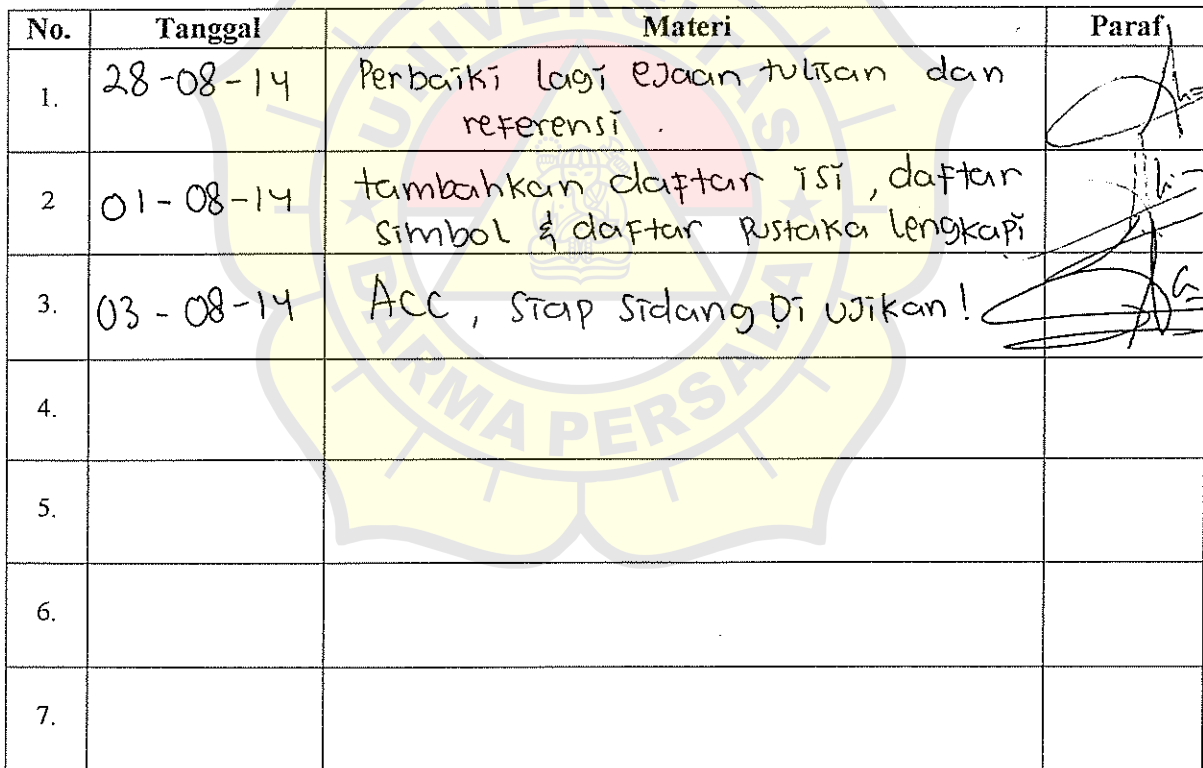 No. Tanggal Materi Paraf
1. 28-08-14 Perbaiki lagi ejaan tulisan dan
referensi.
2 01-08-14 tambahkan daftar isi, daftar
simbol & daftar pustaka lengkapi
3. 03-08-14 ACC, siap sidang Di ujikan!
4.
5.
6.
7.
UNIVERSITAS
DARMA PERSADA